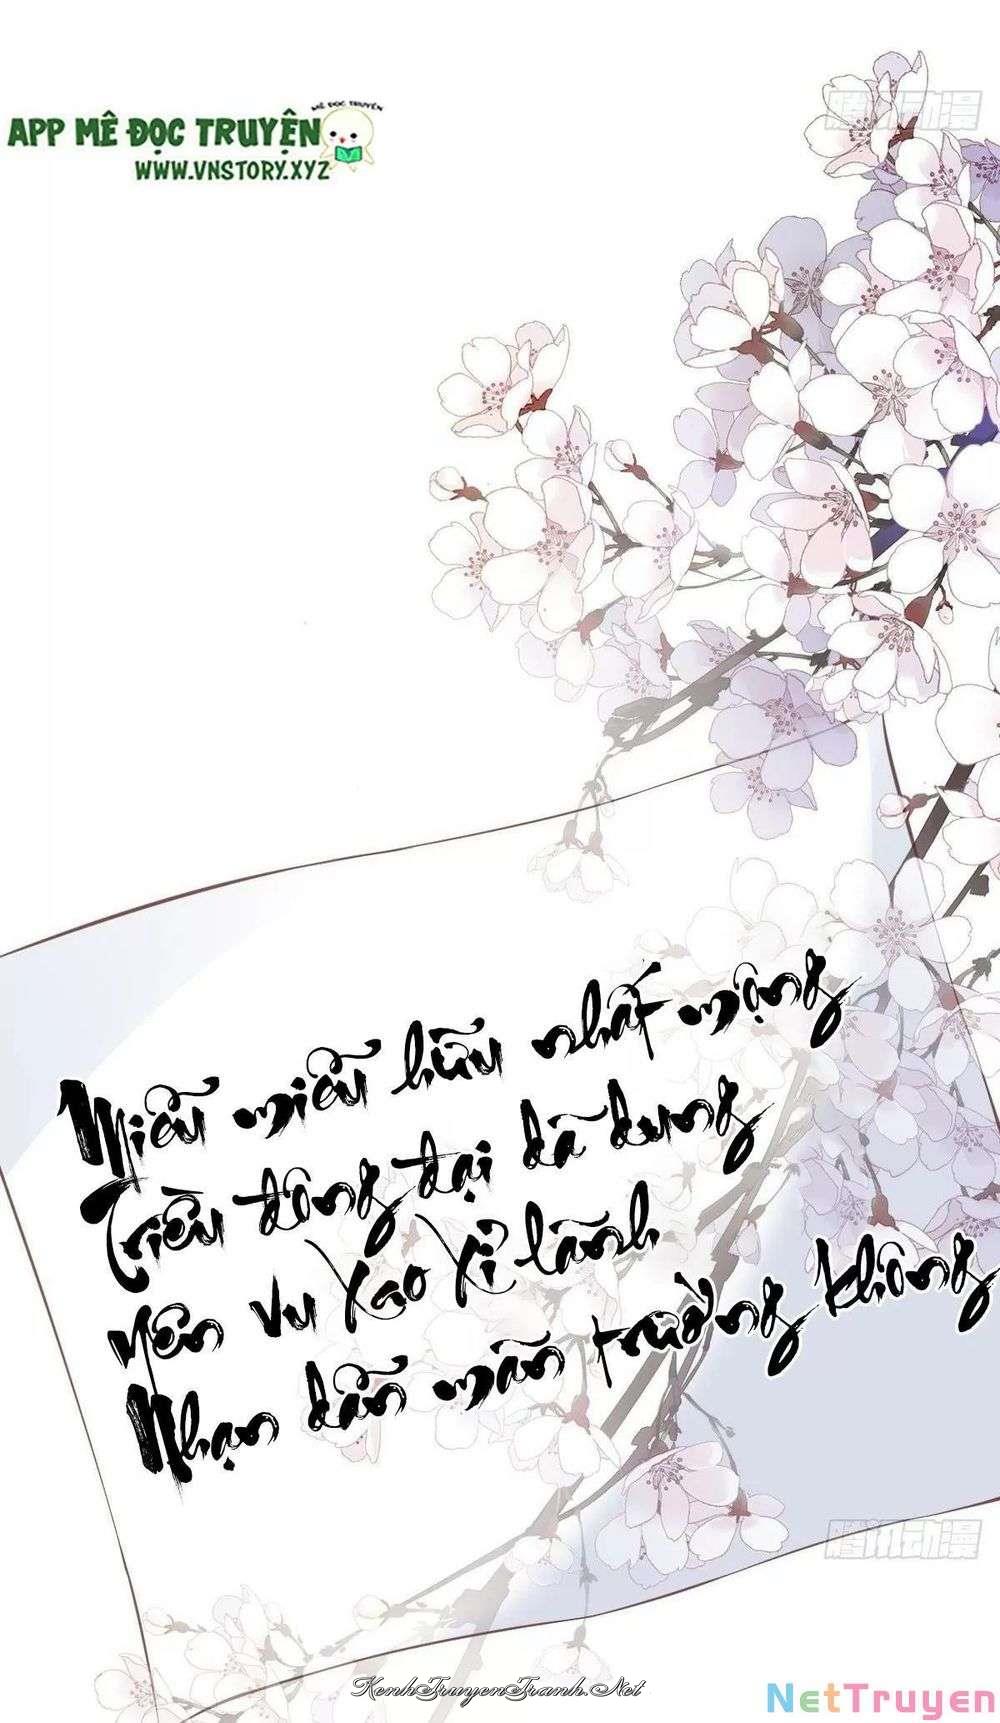 MÊ ĐỌC TRUYỆN
APP MÊ ĐỌC TRUYỆN
WWW.VNSTORY.XYZ
腾讯动漫
Miễu miễu hữu nhất mộng
Triều đông đại dã dung
Yên vu xao xỉ lãnh
Nhạn dẫn mãn trường không
腾讯动漫
KenhTruyenTranh.Net
NetTruyen